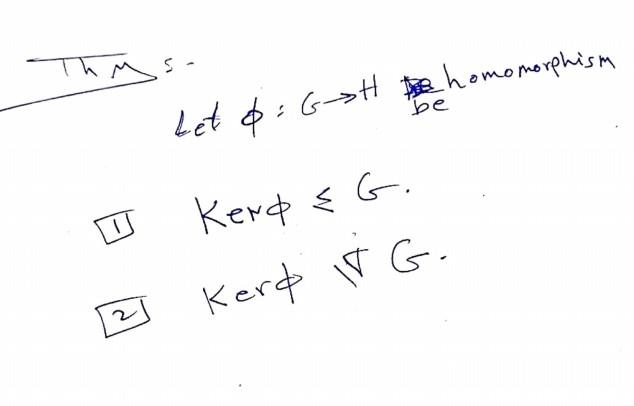 Thms-
Let φ: G→H be homomorphism
[1] Kerφ ≤ G.
[2] Kerφ G.